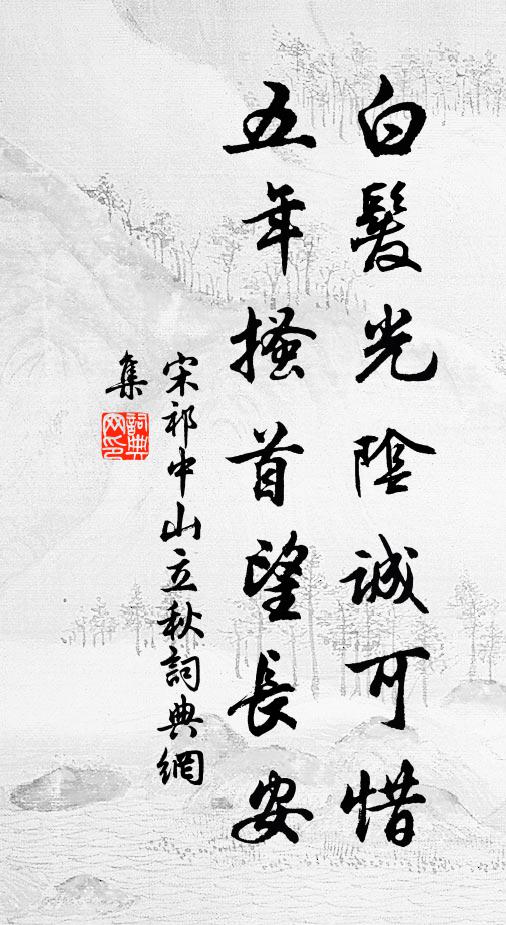 白髮光陰誠可惜
五年搔首望長安
宋祁中山立秋詞典網
集
詞典
网印